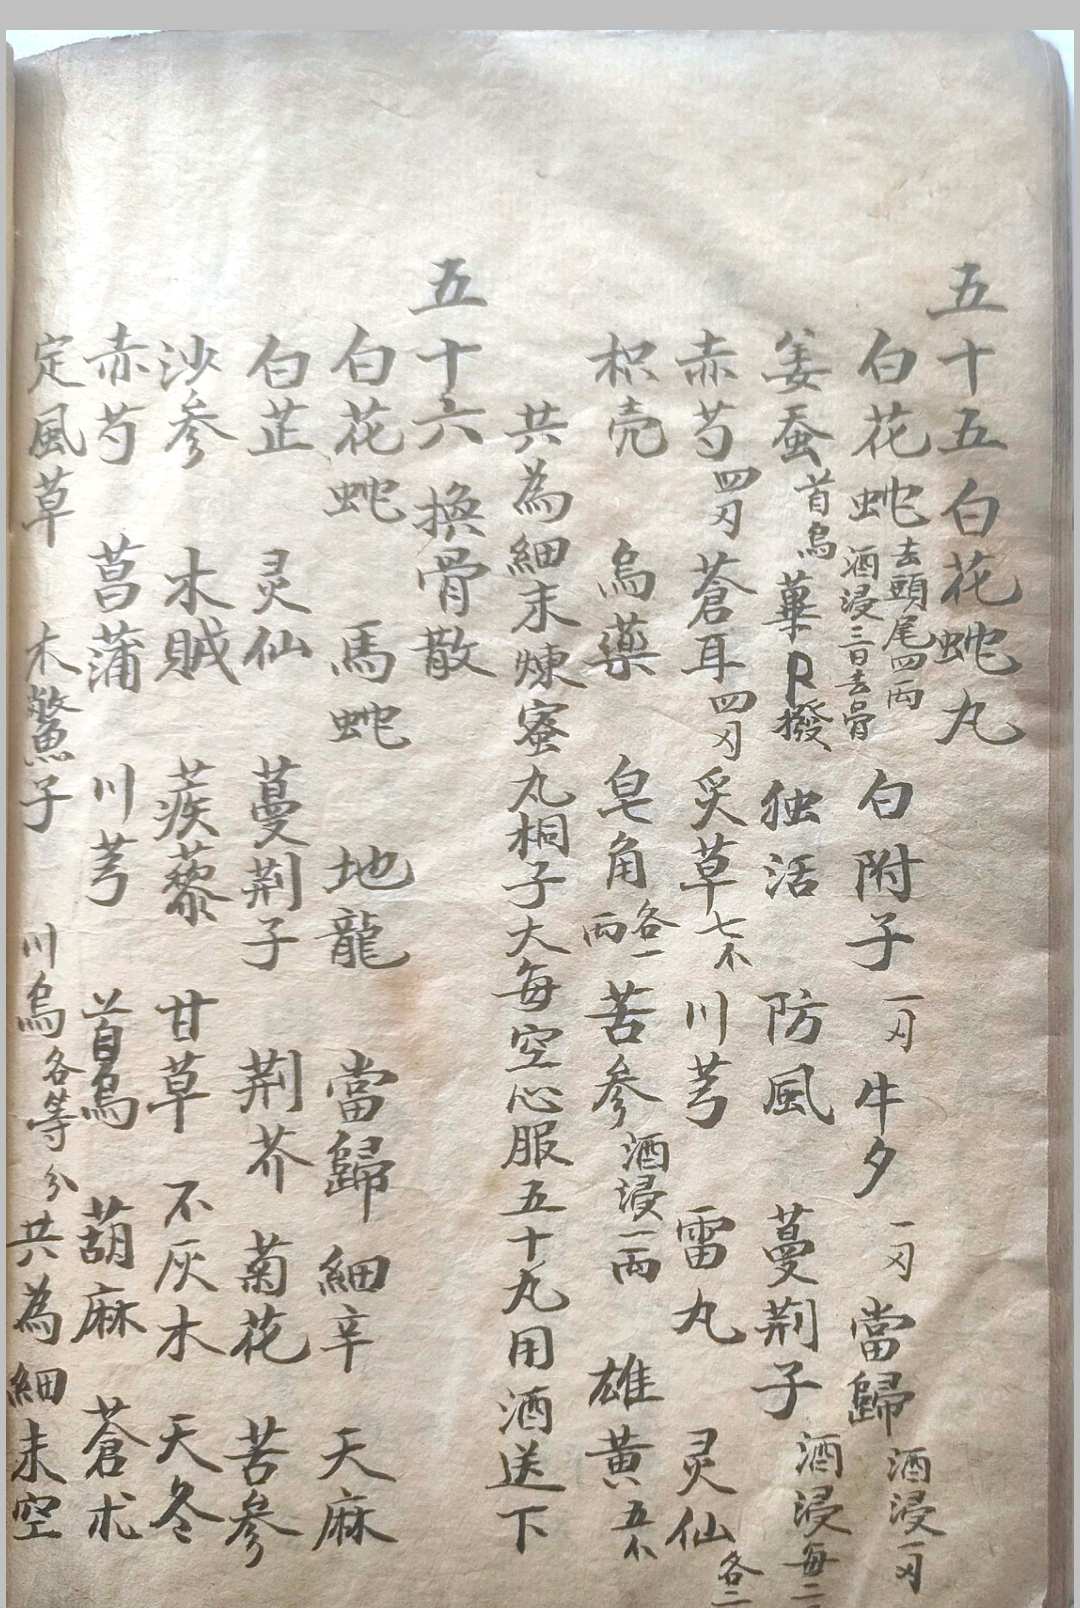 五十五白花蛇丸
白花蛇去頭尾四両酒浸三日去骨 白附子一刄 牛夕一刄 當歸酒浸一刄
姜蚕 首烏 撥 独活 防風 蔓荆子酒浸每二
赤芍四刄 蒼耳四刄 炙草七不 川芎 雷丸 灵仙各二
枳壳 烏藥 皂角各一両 苦參酒浸一両 雄黄五不
共為細末煉蜜丸桐子大每空心服五十丸用酒送下
五十六換骨散
白花蛇 馬蛇 地龍 當歸 細辛 天麻
白芷 灵仙 蔓荆子 荆芥 菊花 苦參
沙參 木賊 蒺藜 甘草 不灰木 天冬
赤芍 菖蒲 川芎 首烏 葫麻 蒼朮
定風草 木鱉子 川烏各等分共為細末空